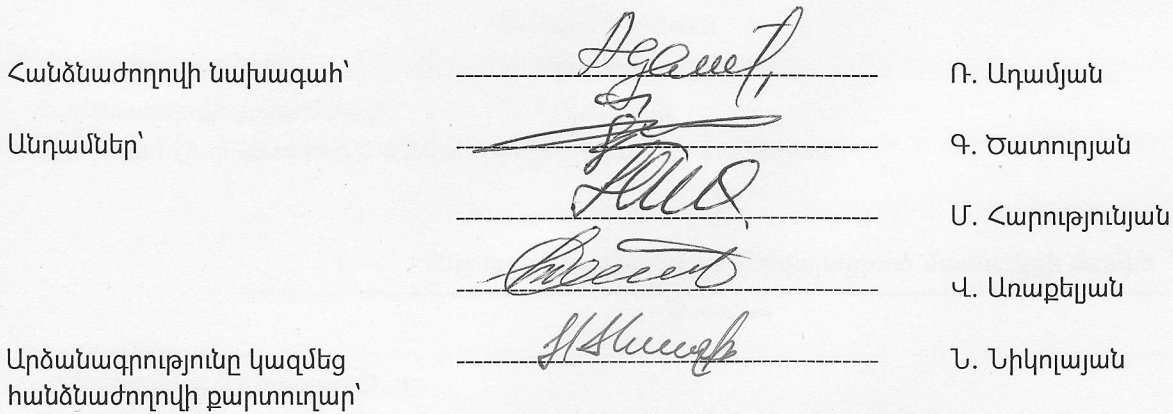 Հանձնաժողովի նախագահ՝ Ռ. Ադամյան
Անդամներ՝ Գ. Ծատուրյան
Մ. Հարությունյան
Վ. Առաքելյան
Արձանագրությունը կազմեց Ն. Նիկոլայան
հանձնաժողովի քարտուղար՝